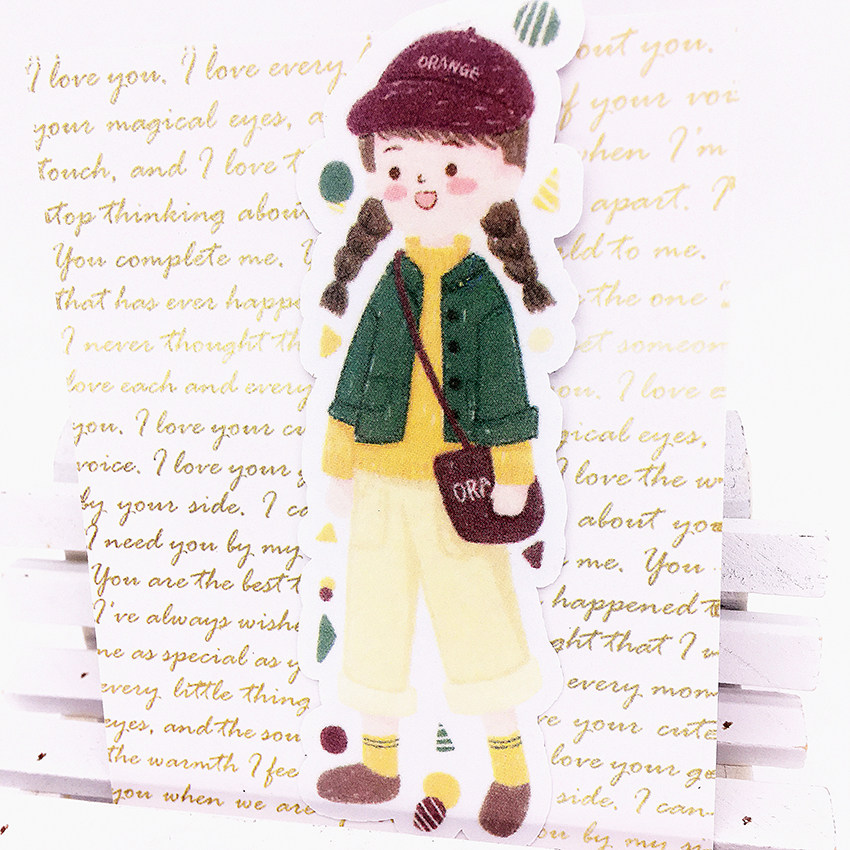 I love you. I love every out you.
your magical eyes, a f your voi
touch, and I love t when I'm
stop thinking about apart. I
You complete me. ld to me.
that has ever happe the one
I never thought th et someon
love each and every ou. I love e
you. I love your cu gical eyes,
voice. I love your g I love the w
by your side. I ca about you
I need you by my me. You
You are the best t happened t
I've always wishe ght that I w
me as special as y every mom
every little thing ve your cute
eyes, and the sou love your ge
the warmth I fee side. I can
you when we are ou by my si
ORANGE
ORA